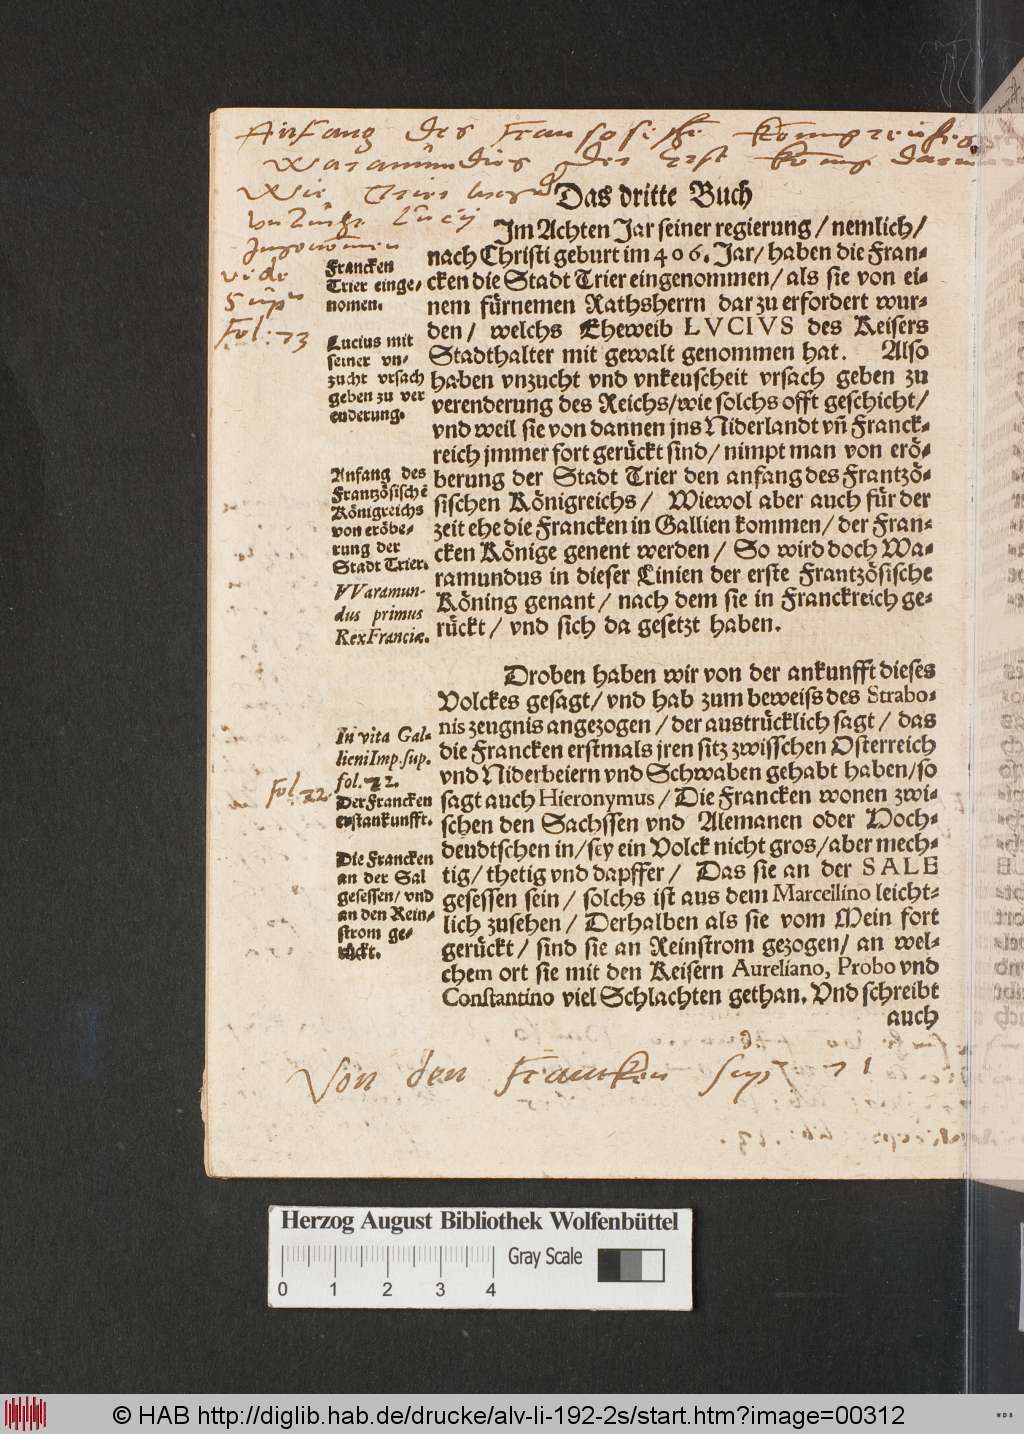 Anfang des Fransosische Königreichs
Waramundus der Erst König darin
Wie Trier
Lucij
Ingenomen
vide
Sup
Fol: 73
Das dritte Buch
Im Achten Jar seiner regierung / nemlich /
nach Christi geburt im 406. Jar / haben die Fran⸗
cken die Stadt Trier eingenommen / als sie von ei⸗
nem fürnemen Rathsherrn darzu erfordert wur⸗
den / welchs Eheweib LVCIVS des Keisers
Stadthalter mit gewalt genommen hat. Also
haben vnzucht vnd vnkeuscheit vrsach geben zu
verenderung des Reichs / wie solchs offt geschicht /
vnd weil sie von dannen jns Niderlandt vñ Franck⸗
reich jmmer fort gerückt sind / nimpt man von erö⸗
berung der Stadt Trier den anfang des Frantzö⸗
sischen Königreichs / Wiewol aber auch für der
zeit ehe die Francken in Gallien kommen / der Fran⸗
cken Könige genent werden / So wird doch Wa⸗
ramundus in dieser Linien der erste Frantzösische
Köning genant / nach dem sie in Franckreich ge⸗
rückt / vnd sich da gesetzt haben.
Francken
Trier einge⸗
nomen.
Lucius mit
seiner vn⸗
zucht vrsach
geben zu ver
enderung.
Anfang des
Frantzösischē
Königreichs
von eröbe⸗
rung der
Stadt Trier.
VVaramun-
dus primus
Rex Franciæ.
Droben haben wir von der ankunfft dieses
Volckes gesagt / vnd hab zum beweiss des Strabo⸗
nis zeugnis angezogen / der austrücklich sagt / das
die Francken erstmals jren sitz zwisschen Osterreich
vnd Niderbeiern vnd Schwaben gehabt haben / so
sagt auch Hieronymus / Die Francken wonen zwi⸗
schen den Sachssen vnd Alemanen oder Hoch⸗
deudtschen in / sey ein Volck nicht gros / aber mech⸗
tig / thetig vnd dapffer / Das sie an der SALE
gesessen sein / solchs ist aus dem Marcellino leicht⸗
lich zusehen / Derhalben als sie vom Mein fort
gerückt / sind sie an Reinstrom gezogen / an wel⸗
chem ort sie mit den Keisern Aureliano, Probo vnd
Constantino viel Schlachten gethan. Vnd schreibt
auch
In vita Gal-
lieni Imp. sup.
fol. 72.
Fol. 72
Der Francken
erst ankunfft.
Die Francken
an der Sal
gesessen / vnd
an den Rein⸗
strom ge⸗
rückt.
Von den Francken sup 71
Herzog August Bibliothek Wolfenbüttel
Gray Scale
0 1 2 3 4
© HAB http://diglib.hab.de/drucke/alv-li-192-2s/start.htm?image=00312